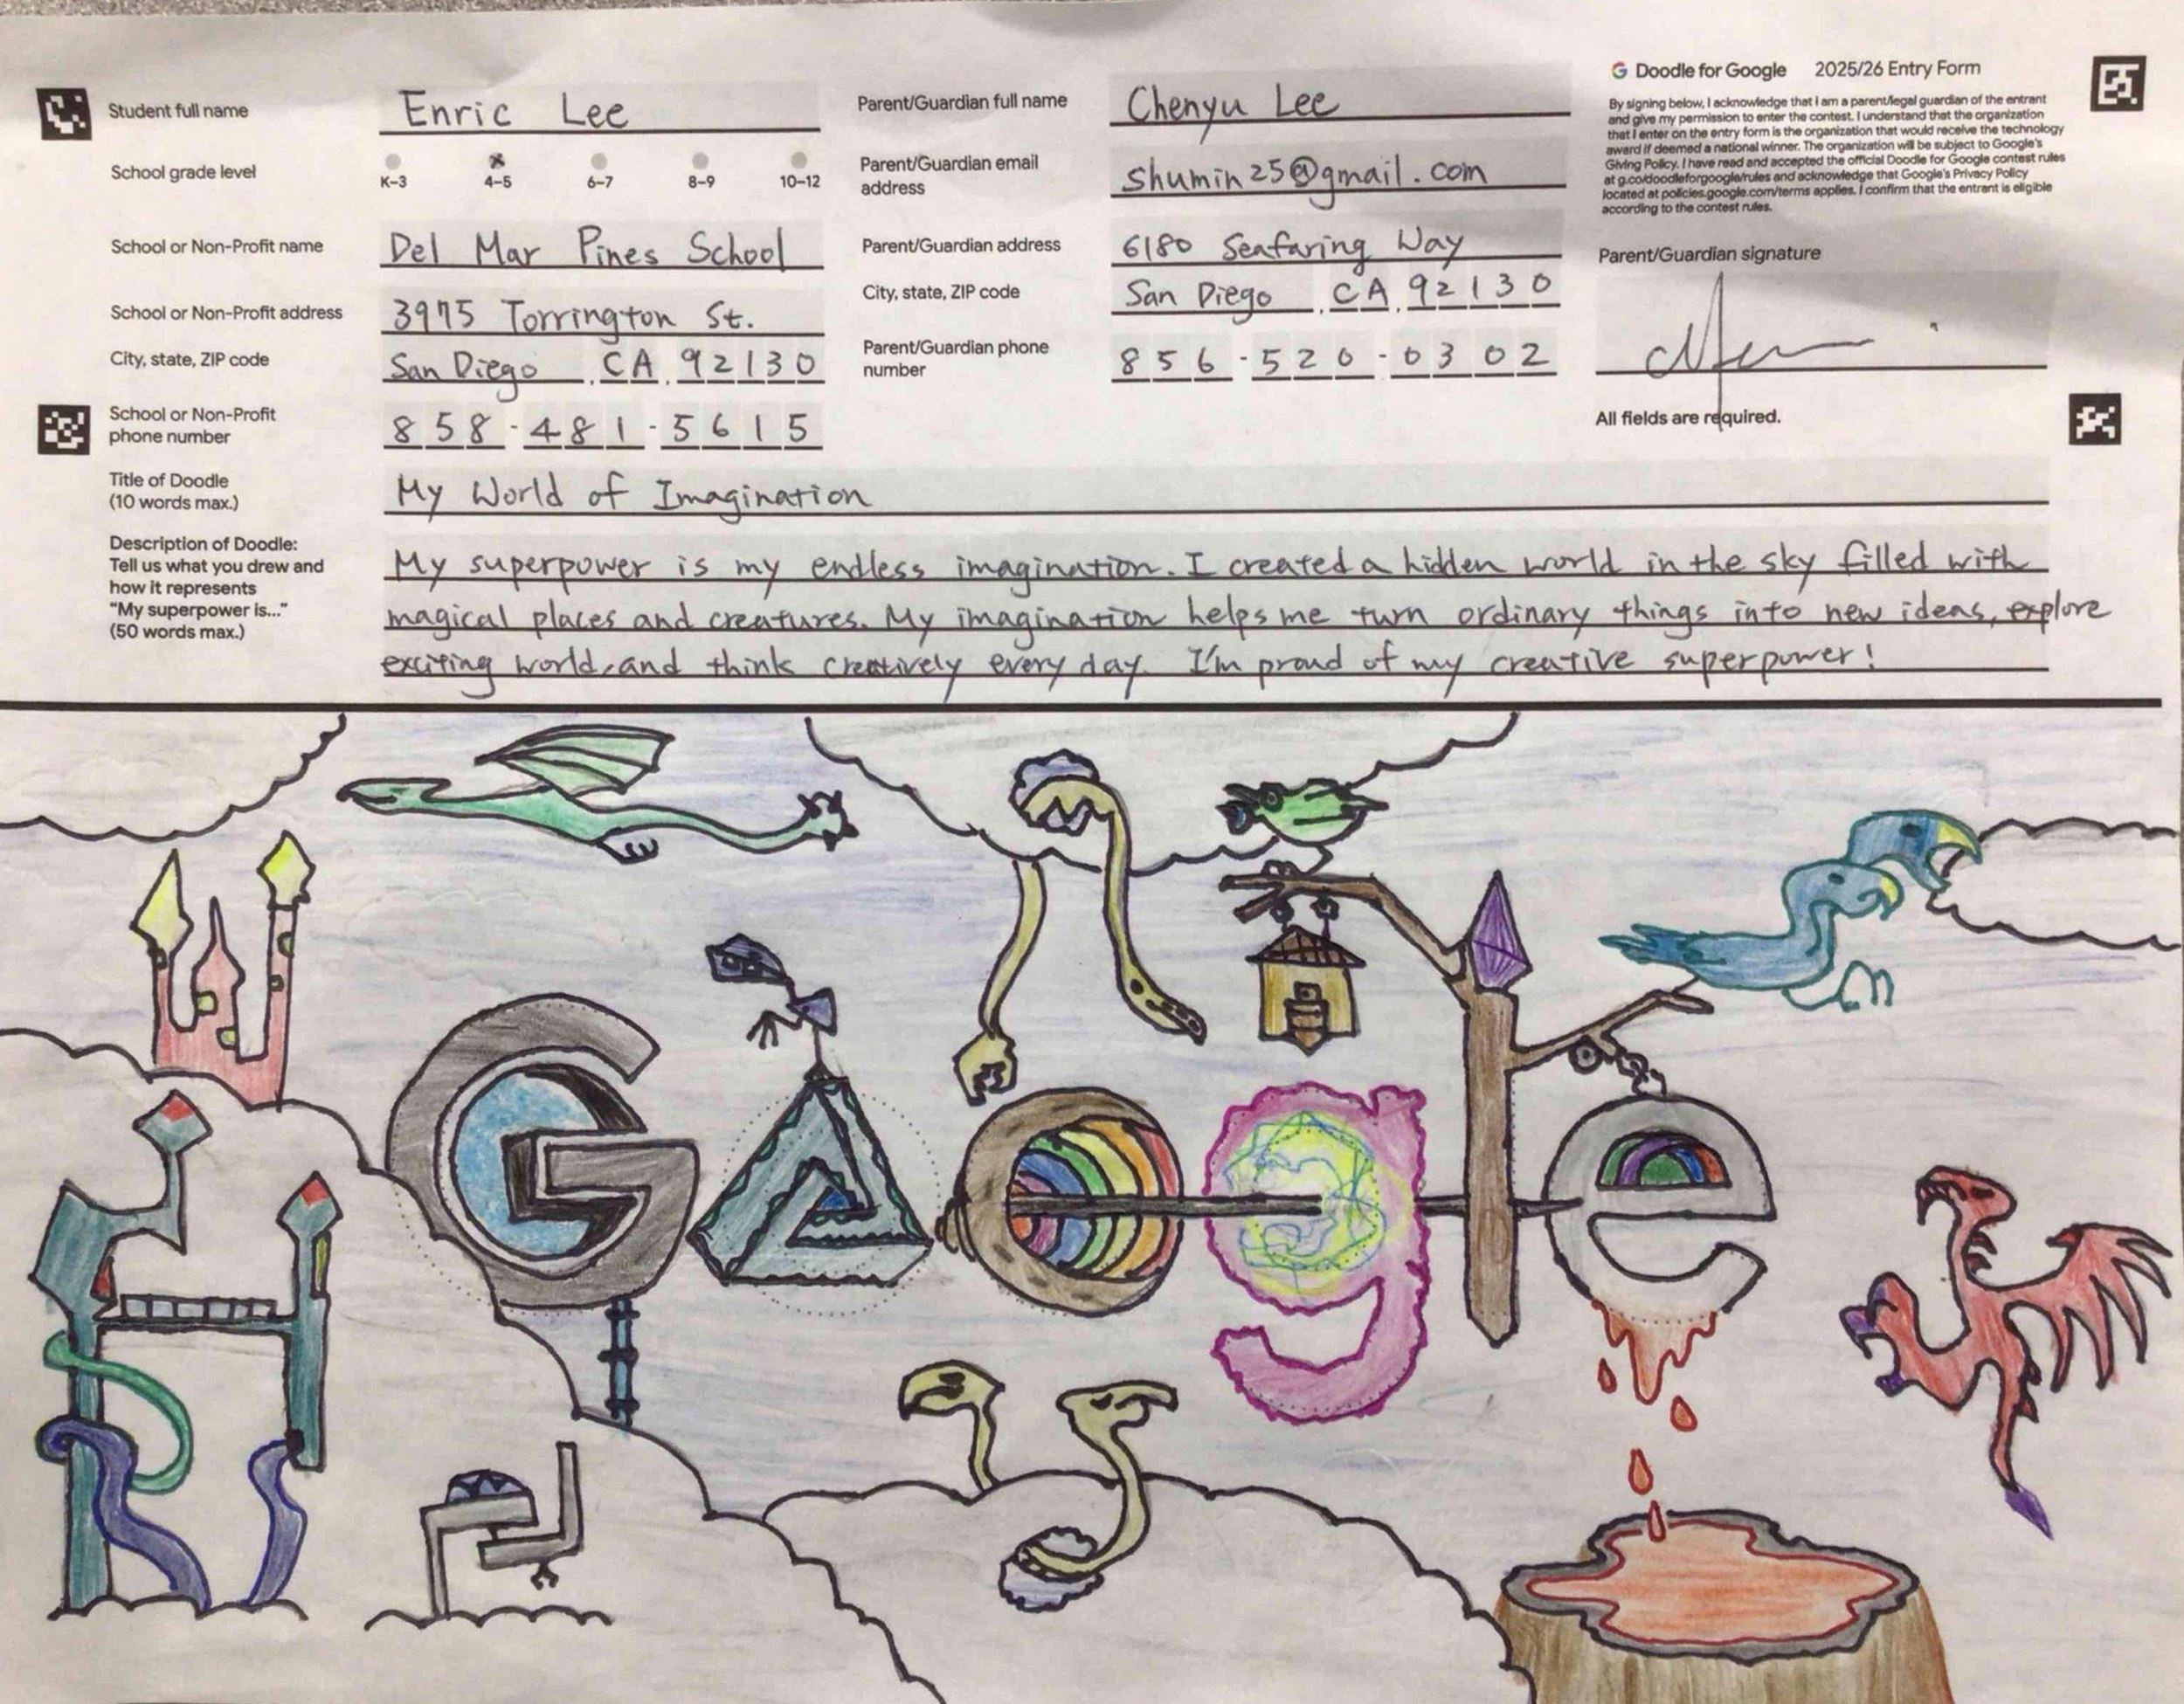 G Doodle for Google 2025/26 Entry Form
Student full name Enric Lee
School grade level K–3 4–5 6–7 8–9 10–12
School or Non-Profit name Del Mar Pines School
School or Non-Profit address 3975 Torrington St.
City, state, ZIP code San Diego, CA, 92130
School or Non-Profit
phone number 858-481-5615
Parent/Guardian full name Chenyu Lee
Parent/Guardian email
address shumin25@gmail.com
Parent/Guardian address 6180 Seafaring Way
City, state, ZIP code San Diego, CA, 92130
Parent/Guardian phone
number 856-520-0302
By signing below, I acknowledge that I am a parent/legal guardian of the entrant
and give my permission to enter the contest. I understand that the organization
that I enter on the entry form is the organization that would receive the technology
award if deemed a national winner. The organization will be subject to Google's
Giving Policy. I have read and accepted the official Doodle for Google contest rules
at g.co/doodleforgoogle/rules and acknowledge that Google's Privacy Policy
located at policies.google.com/terms applies. I confirm that the entrant is eligible
according to the contest rules.
Parent/Guardian signature
All fields are required.
Title of Doodle
(10 words max.)
My World of Imagination
Description of Doodle:
Tell us what you drew and
how it represents
"My superpower is..."
(50 words max.)
My superpower is my endless imagination. I created a hidden world in the sky filled with
magical places and creatures. My imagination helps me turn ordinary things into new ideas, explore
exciting world, and think creatively every day. I'm proud of my creative superpower!
Google